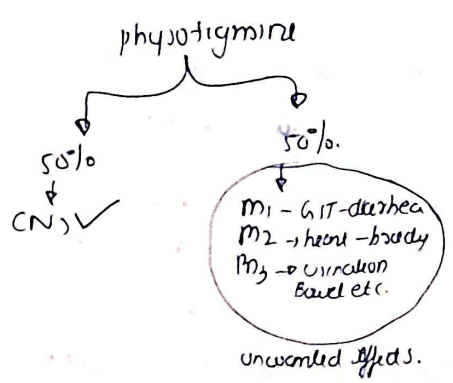 physotigmine
50%
50%.
CNS ✓
M1 - GIT - diarrhea
M2 → heart - brady
M3 → urination
Bowel etc.
unwanted effects.